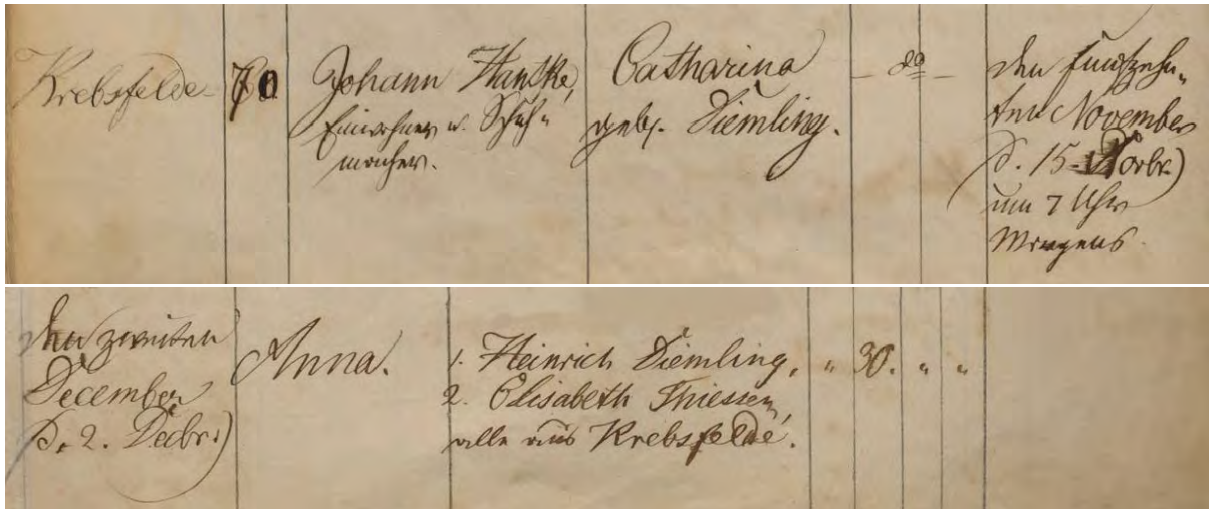 Krebsfelde
70
Johann Hantke,
Einwohner u. Schuh-
macher.
Catharina
geb. Diemling.
do
den fünfzehn-
ten November
(d. 15. Novbr.)
um 7 Uhr
Morgens.
den zweiten
December
(d. 2. Decbr.)
Anna.
1. Heinrich Diemling,
2. Elisabeth Thiessen,
alle aus Krebsfelde.
" 30. " "